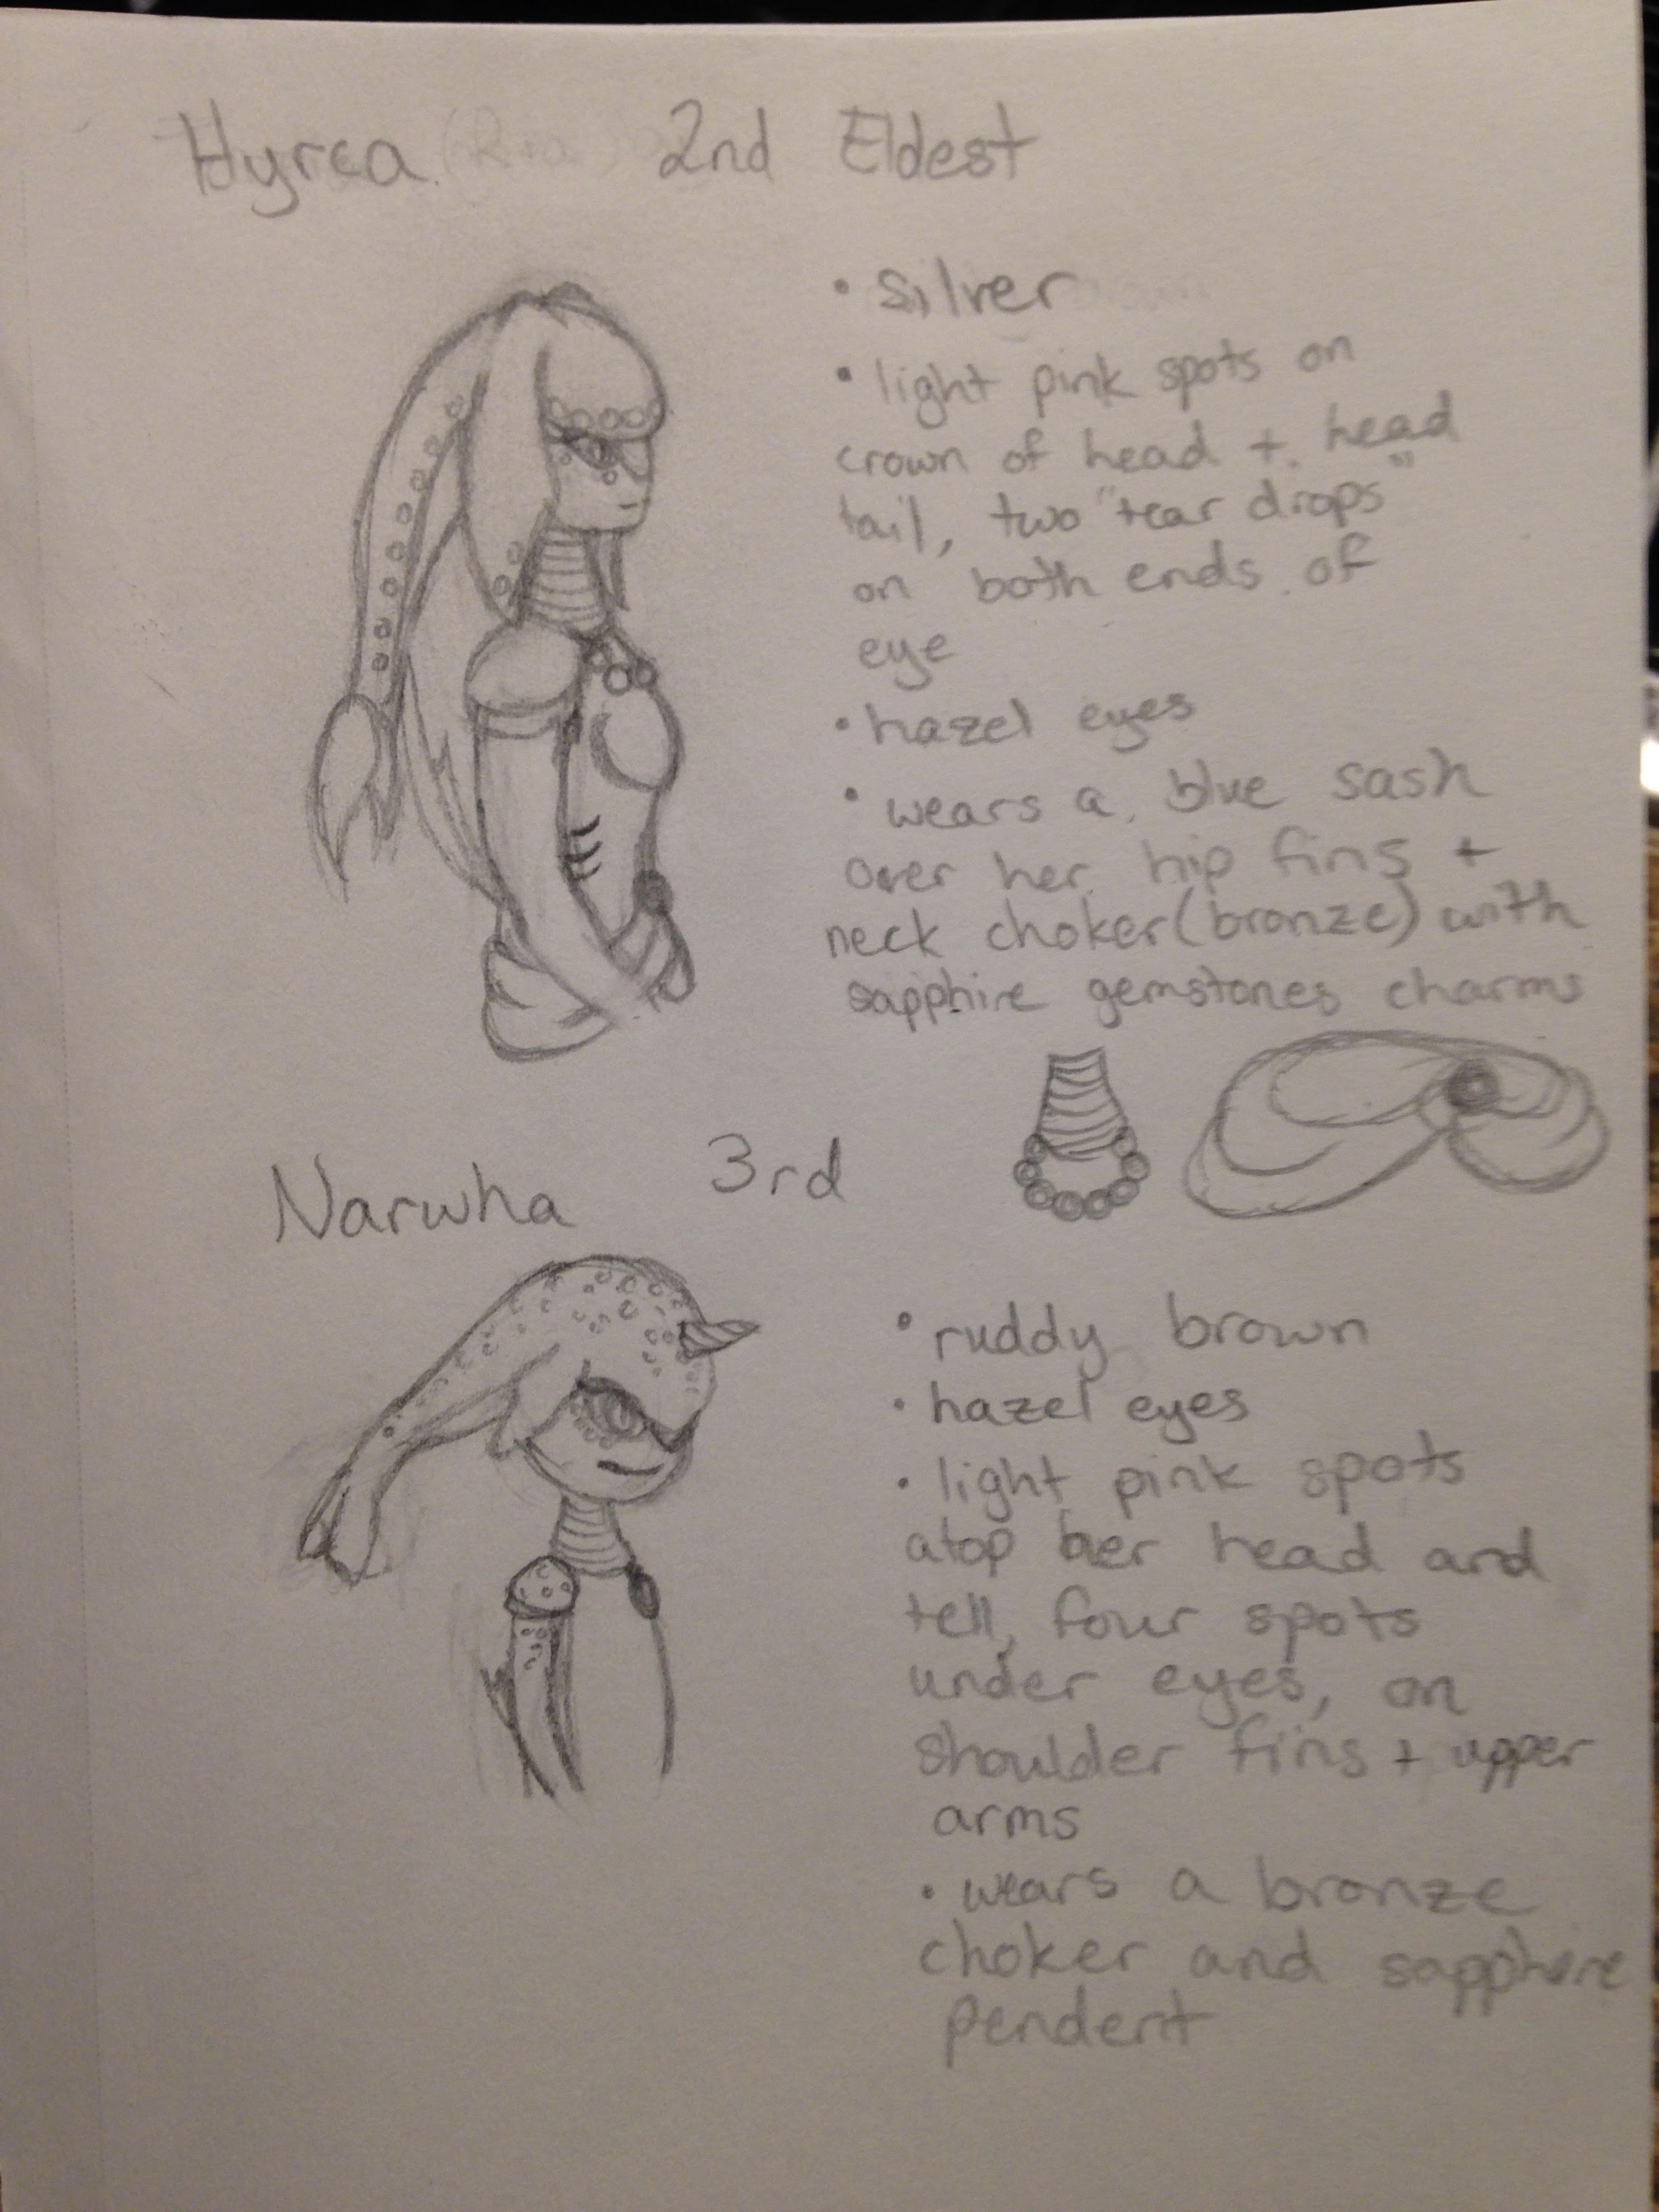 Hyrca 2nd Eldest
• silver
• light pink spots on
crown of head + head
tail, two "tear drops"
on both ends of
eye
• hazel eyes
• wears a blue sash
over her hip fins +
neck choker (bronze) with
sapphire gemstones charms
Narwha 3rd
• ruddy brown
• hazel eyes
• light pink spots
atop her head and
tell, four spots
under eyes, on
shoulder fins + upper
arms
• wears a bronze
choker and sapphire
pendent